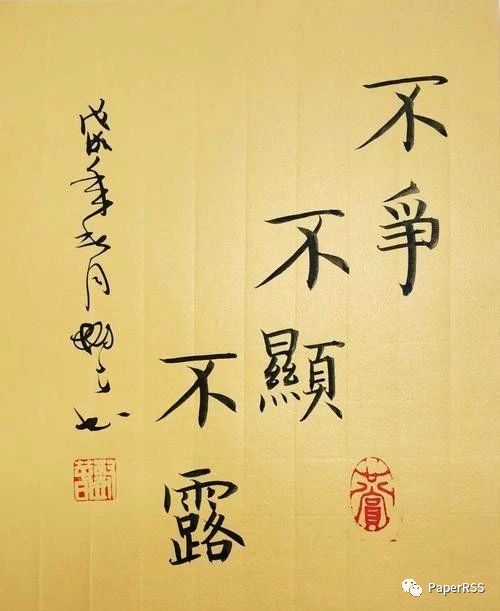 不爭
不顯
不露
年 月
共賞
PaperRSS